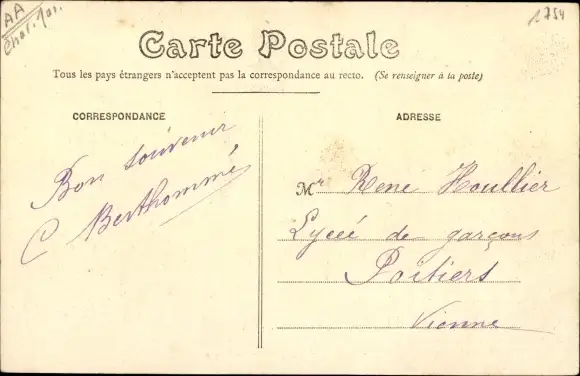 AA
Char. Mar.
1754
Carte Postale
Tous les pays étrangers n'acceptent pas la correspondance au recto. (Se renseigner à la poste)
CORRESPONDANCE
Bon souvenir
C Berthommé
ADRESSE
Mr René Houllier
Lycée de garçons
Poitiers
Vienne